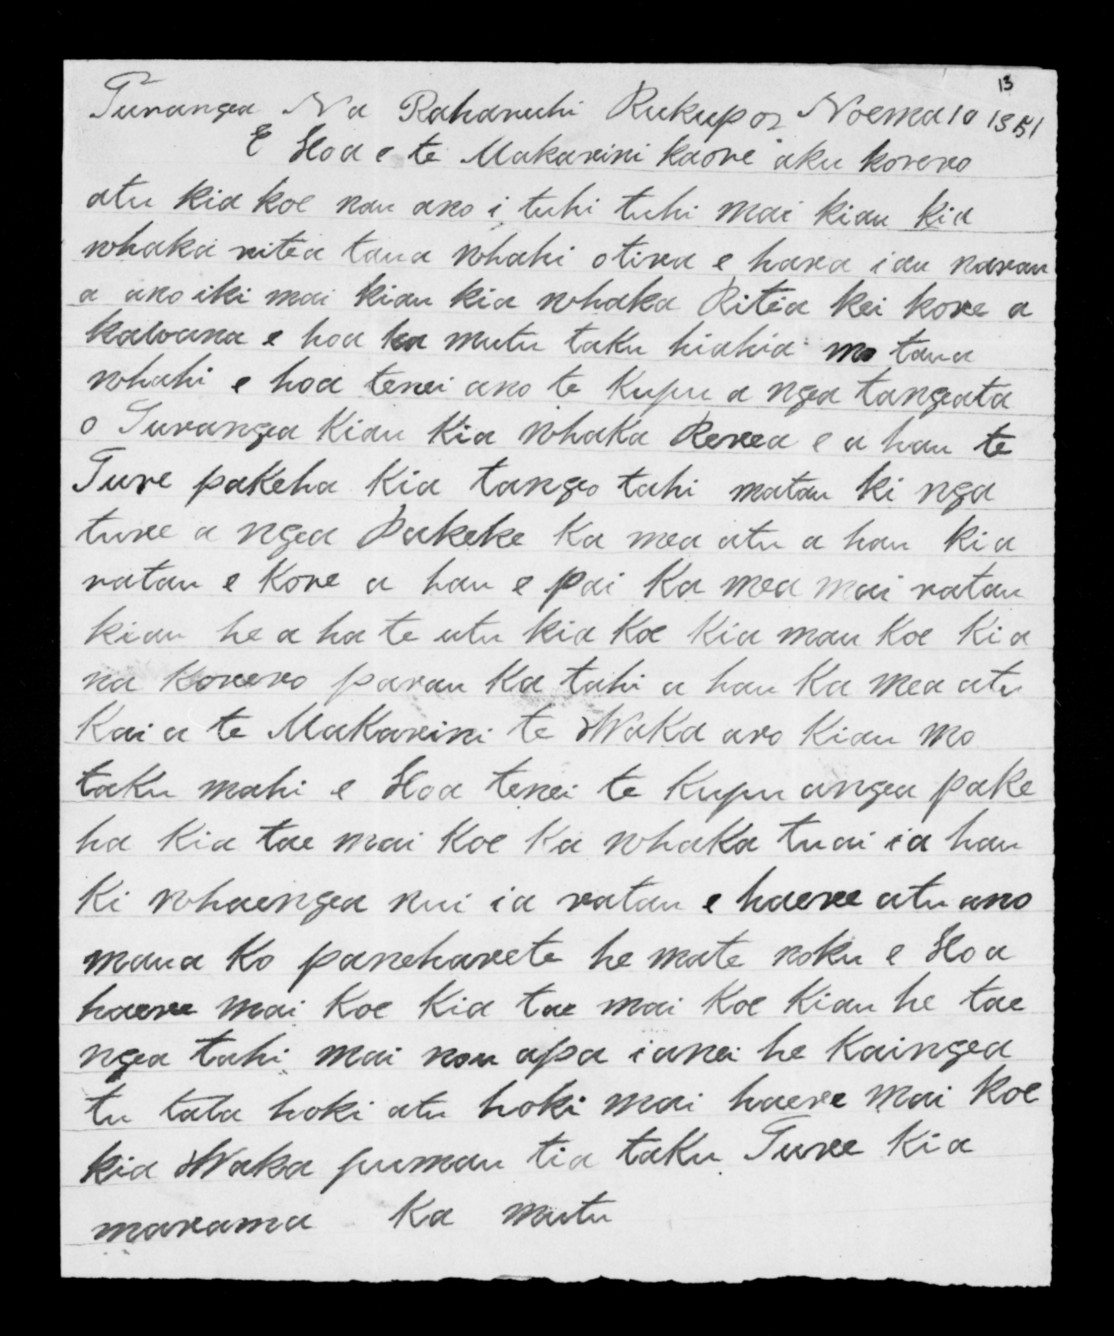 13
Turanga Na Raharuhi Rukupo Noema 10 1851
E Hoa e te Makarini kaore aku korero
atu kia koe nau ano i tuhi tuhi mai kiau kia
whaka ritea taua whahi otira e hara i au narau
a ano iki mai kiau kia whaka Ritea kei kore a
kawana e hoa ka mutu taku hiahia mo taua
whahi e hoa tenei ano te Kupu a nga tangata
o Turanga Kiau Kia whaka Rerea e a hau te
Ture pakeha Kia tango tahi matau ki nga
ture a nga Pakeke Ka mea atu a hau kia
ratau e Kore a hau e pai Ka mea mai ratau
kiau he a ha te utu kia Koe Kia mau Koe Ki a
na Korero parau Ka tahi a hau Ka mea atu
Kai a te Makarini te Waka aro Kiau mo
taku mahi e Hoa tenei te Kupu anga pake
ha Kia tae mai Koe Ka whaka tu ai i a hau
Ki whaenga nui i a ratau e haere atu ano
maua Ko paneharete he mate noku e Hoa
haere mai Koe Kia tae mai Koe Kiau he tae
nga tahi mai nou apa ianei he Kainga
tu tata hoki atu hoki mai haere mai Koe
kia Waka pumau tia taku Ture Kia
marama Ka mutu